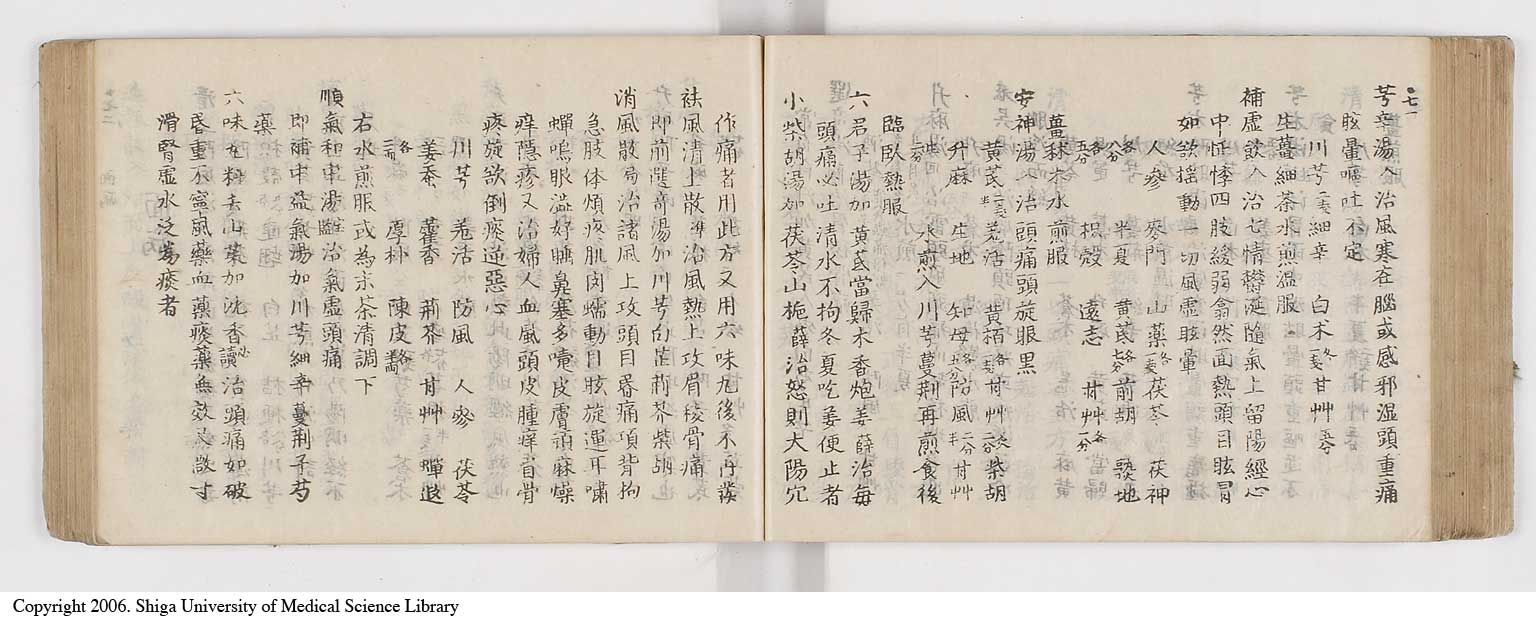 七一
芎辛湯入治風寒在腦或感邪湿頭重痛
眩暈嘔吐不定
川芎 細辛 白朮 甘艸
生薑細茶水煎温服
補虚飲入治七情欝涎隨氣上留陽經心
中怔悸四肢緩弱翕然面熱頭目眩冒
如欲揺動一切風虚眩暈
人參 麥門 山藥 茯苓 茯神
半夏 黄芪 前胡 熟地
枳殻 遠志 甘艸
薑秫米水煎服
安神湯入治頭痛頭旋眼黒
黄芪 羌活 黄栢 甘艸 柴胡
升麻 生地 知母 防風 甘艸
水煎入川芎蔓荆再煎食後
臨臥熱服
六君子湯加黄芪當歸木香炮姜薛治毎
頭痛必吐清水不拘冬夏吃姜便止者
小柴胡湯加茯苓山梔薛治怒則太陽穴
作痛者用此方又用六味丸後不再發
袪風清上散 治風熱上攻眉稜骨痛
即前選奇湯加川芎白芷荊芥柴胡
消風散局治諸風上攻頭目昬痛項背拘
急肢体煩疼肌肉蠕動目眩旋運耳嘯
蟬鳴眼澁好睡鼻塞多嚔皮膚頑麻𤺋
痒隠疹又治婦人血風頭皮腫痒眉骨
疼旋欲倒痰逆惡心
川芎 羌活 防風 人參 茯苓
姜蚕 藿香 荊芥 甘艸 蟬退
厚朴 陳皮
右水煎服或為末茶清調下
順氣和中湯 治氣虚頭痛
即補中益氣湯加川芎細辛蔓荆子芍
藥
六味左料去山藥加沈香讀 治頭痛如破
昏重不寧風藥血藥痰藥無效及
滑腎虚水泛為痰者
Copyright 2006. Shiga University of Medical Science Library